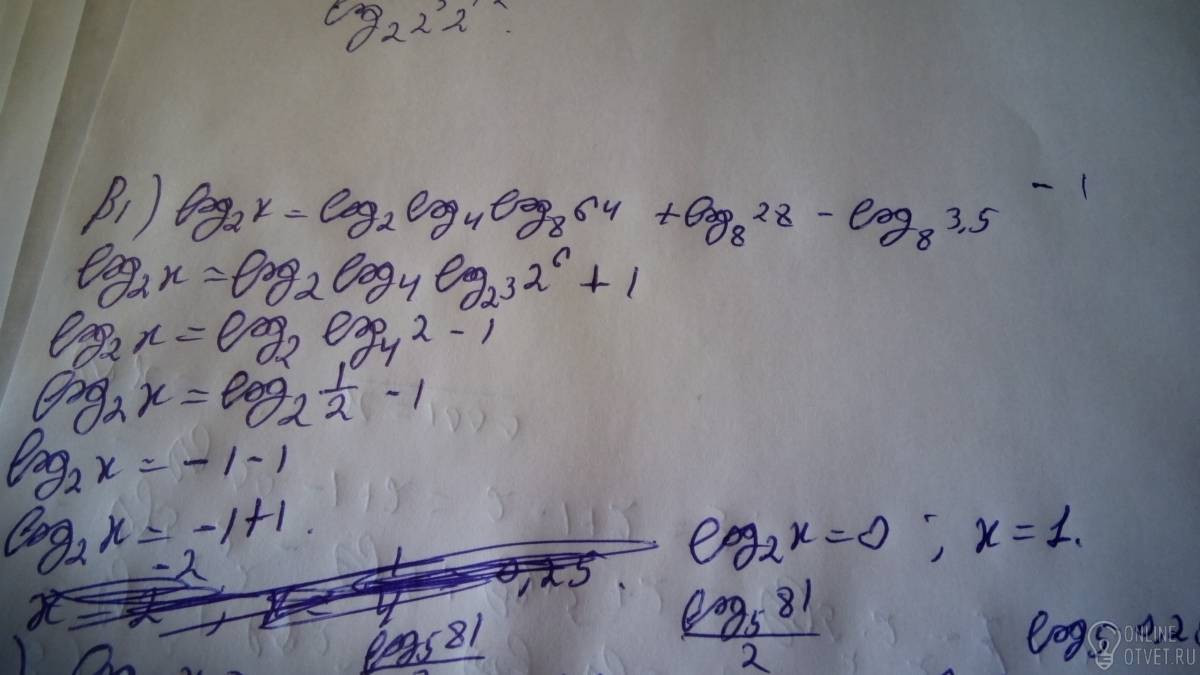 log₂2³2
в1) log₂x = log₂ log₄ log₈ 64 + log₈ 28 - log₈ 3,5 - 1
log₂x = log₂ log₄ log₂³ 2⁶ + 1
log₂x = log₂ log₄ 2 - 1
log₂x = log₂ 1/2 - 1
log₂x = -1 - 1
log₂x = -1 + 1.
log₂x = 0 ; x = 1.
log₅81
log₅81 / 2
log₅
ONLINE
OTVET.RU